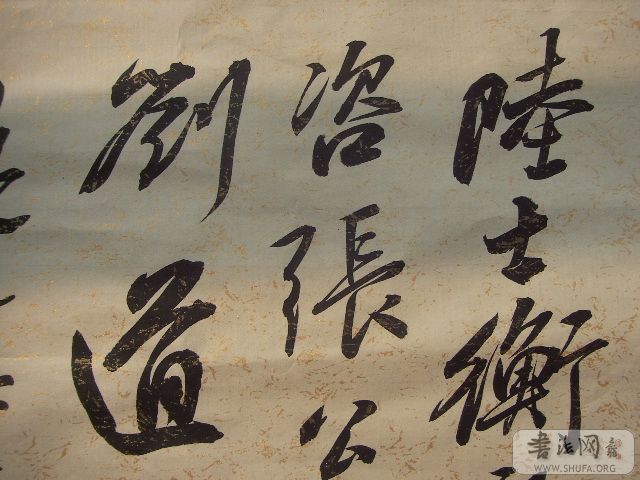 陸士衡
咨張公
劉道
書法网
WWW.SHUFA.ORG